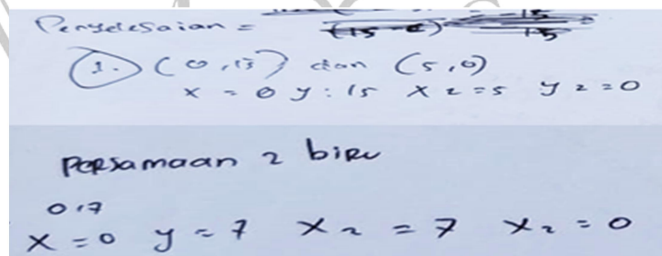 Penyelesaian =
1. (0,15) dan (5,0)
x = 0 y : 15 x 2 = 5 y 2 = 0
Persamaan 2 biru
0,7
x = 0 y = 7 x 2 = 7 x 2 = 0